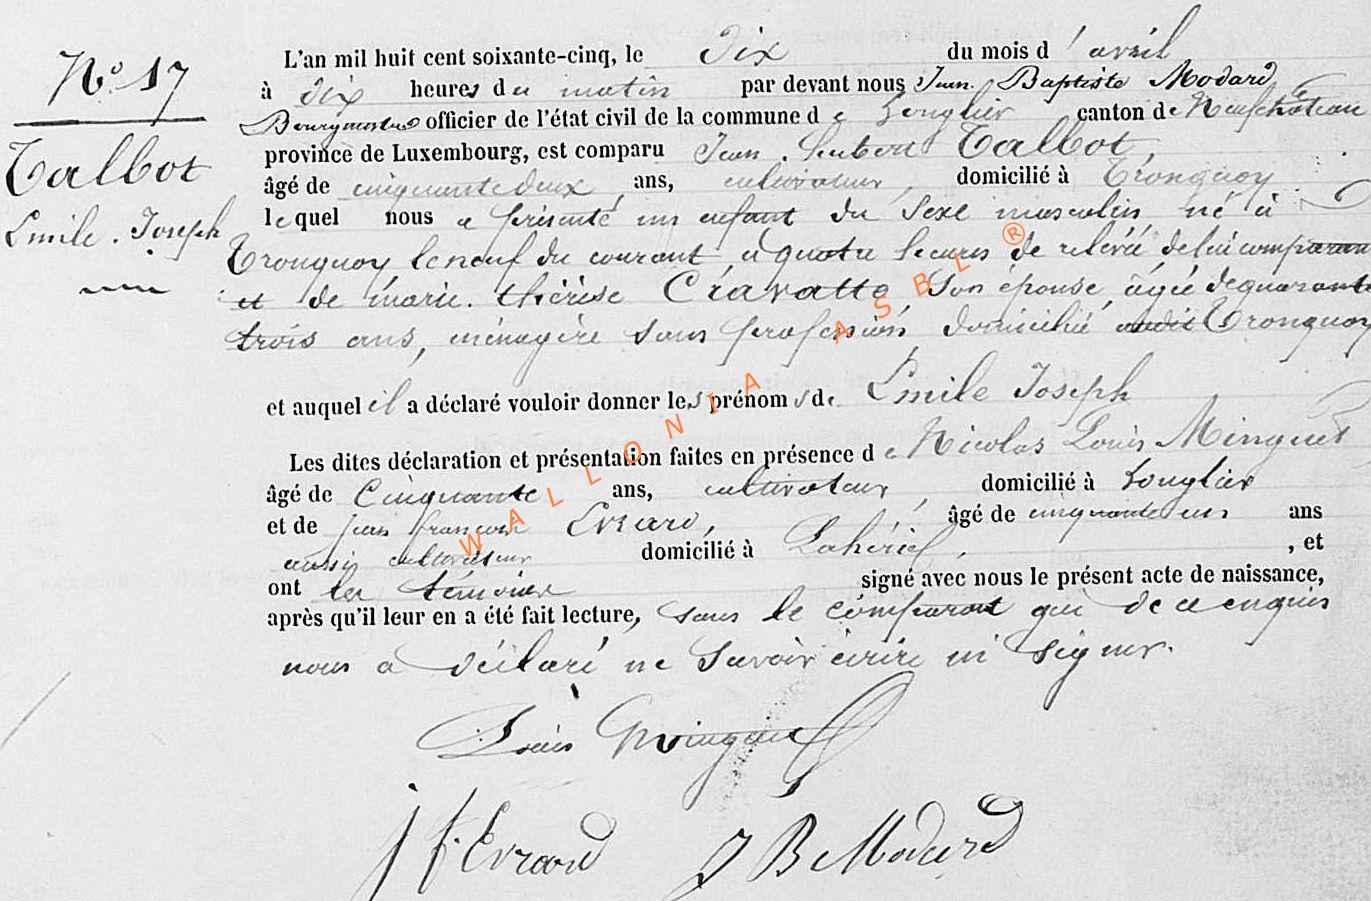 N° 17
Talbot
Emile Joseph
L'an mil huit cent soixante-cinq, le Dix du mois d'avril
à dix heures du matin par devant nous Jean Baptiste Modard
Bourgmestre officier de l'état civil de la commune de Longlier canton de Neufchâteau
province de Luxembourg, est comparu Jean Hubert Talbot,
âgé de cinquante deux ans, cultivateur, domicilié à Tronquoy
lequel nous a présenté un enfant du sexe masculin né à
Tronquoy le neuf du courant à quatre heures de relevée de lui comparant
et de marie thérèse Cravatte son épouse, âgée de quarante
trois ans, ménagère sans profession, domicilié audit Tronquoy
et auquel il a déclaré vouloir donner les prénoms de Emile Joseph
Les dites déclaration et présentation faites en présence de Nicolas Louis Minguet
âgé de Cinquante ans, cultivateur, domicilié à Longlier
et de jean françois Evrard, âgé de cinquante un ans
aussi cultivateur domicilié à Lahérie, , et
ont les témoins signé avec nous le présent acte de naissance,
après qu'il leur en a été fait lecture, sauf le comparant qui de ce enquis
nous a déclaré ne savoir écrire ni signer.
Louis Minguet
J f Evrard J B Modard
WALLONIA ASBL ®